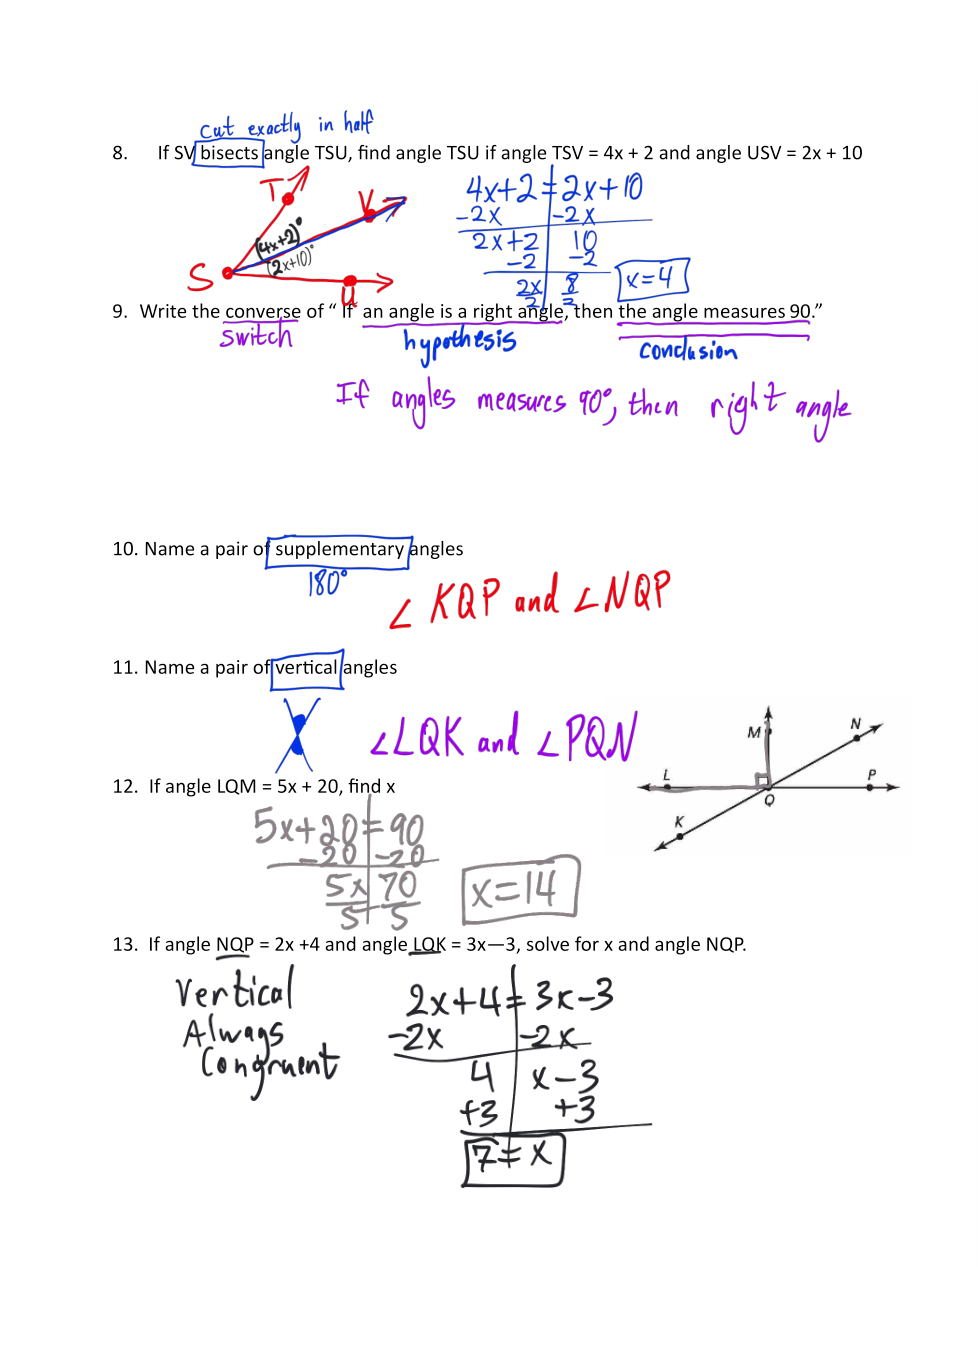 cut exactly in half
8. If SV bisects angle TSU, find angle TSU if angle TSV = 4x + 2 and angle USV = 2x + 10
T
V
S
U
(4x+2)°
(2x+10)°
4x+2 = 2x+10
-2x -2x
2x+2 10
-2 -2
2x 8
2 2
x=4
9. Write the converse of “ If an angle is a right angle, then the angle measures 90.”
switch
hypothesis
conclusion
If angles measures 90°, then right angle
10. Name a pair of supplementary angles
180°
∠KQP and ∠NQP
11. Name a pair of vertical angles
∠LQK and ∠PQN
M
N
L
P
Q
K
12. If angle LQM = 5x + 20, find x
5x+20=90
-20 -20
5x 70
5 5
x=14
13. If angle NQP = 2x +4 and angle LQK = 3x—3, solve for x and angle NQP.
Vertical
Always
Congruent
2x+4=3x-3
-2x -2x
4 x-3
+3 +3
7=x